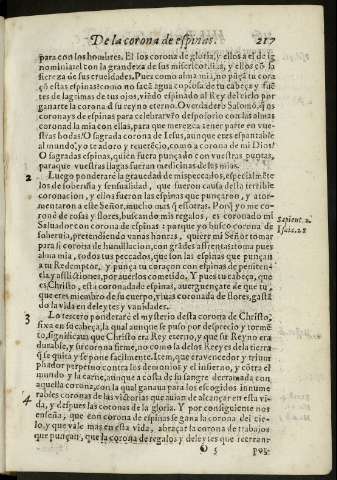 De la corona de espinas. 217
para con los hombres. El los corona de gloria, y ellos a el de ig
nominia: el con la grandeza de sus misericordias, y ellos cõ la
fiereza de sus crueldades. Pues como alma mia, no pũça tu cora
çõ estas espinas: como no sacã agua copiosa de tu cabeça, y fuẽ
tes de lagrimas de tus ojos, viẽdo espinado al Rey del cielo por
ganarte la corona de su reyno eterno. O verdadero Salomõ, q̃ os
coronays de espinas para celebrar vr̃o desposorio con las almas
coronad la mia con ellas, para que merezca tener parte en vues-
tras bodas. O sagrada corona de Iesus, aunque eres espantable
al mundo, yo te adoro y reuerẽcio, como a corona de mi Dios:
O sagradas espinas, quien fuera punçado con vuestras puntas,
para que vuestras llagas fueran medicinas de las mias.
2 Luego ponderarè la grauedad de mis peccados, especialmẽte
los de soberuia y sensualidad, que fueron causa desta terrible
coronacion, y ellos fueron las espinas que punçaron, y ator-
mentaron a este Señor, mucho mas q̃ essotras. Porq̃ yo me co-
ronè de rosas y flores, buscando mis regalos, es coronado mi
Saluador con corona de espinas: porque yo busco corona de
soberuia, pretendiendo vanas honras, quiere mi Señor tomar
para si corona de humillacion, con grãdes affrentas: toma pues
alma mia, todos tus peccados, que son las espinas que punçan
a tu Redemptor, y punça tu coraçon con espinas de peniten-
cia, y afflictiones, por auerlos cometido. Y pues tu cabeça, que
es Christo, està coronada de espinas, auerguençate de que tu,
que eres miembro de su cuerpo, viuas coronada de flores, gastã
do la vida en deleytes y vanidades.
Sapient. 2.
Isaiæ. 28
3 Lo tercero ponderarè el mysterio desta corona de Christo,
fixa en su cabeça, la qual aunque se puso por desprecio y tormẽ
to, significaua que Christo era Rey eterno, y que su Reyno era
durable, y su corona firme, no como la de los Reyes de la tierra
q̃ se quita y se pone facilmente. Item, que era vencedor y trium
phador perpetuo contra los demonios y el infierno, y cõtra el
mundo y la carne, aunque a costa de su sangre derramada con
aquella corona, con la qual ganaua para los escogidos innume
4 rables coronas de las victorias que auian de alcançar en esta vi-
da, y despues las coronas de la gloria. Y por consiguiente nos
enseña, que con corona de espinas se gana la corona del cie-
lo, y que vale mas en esta vida, abraçar la corona de trabajos
que punçan, que la corona de regalos y deleytes que recrean:
O 5 por-